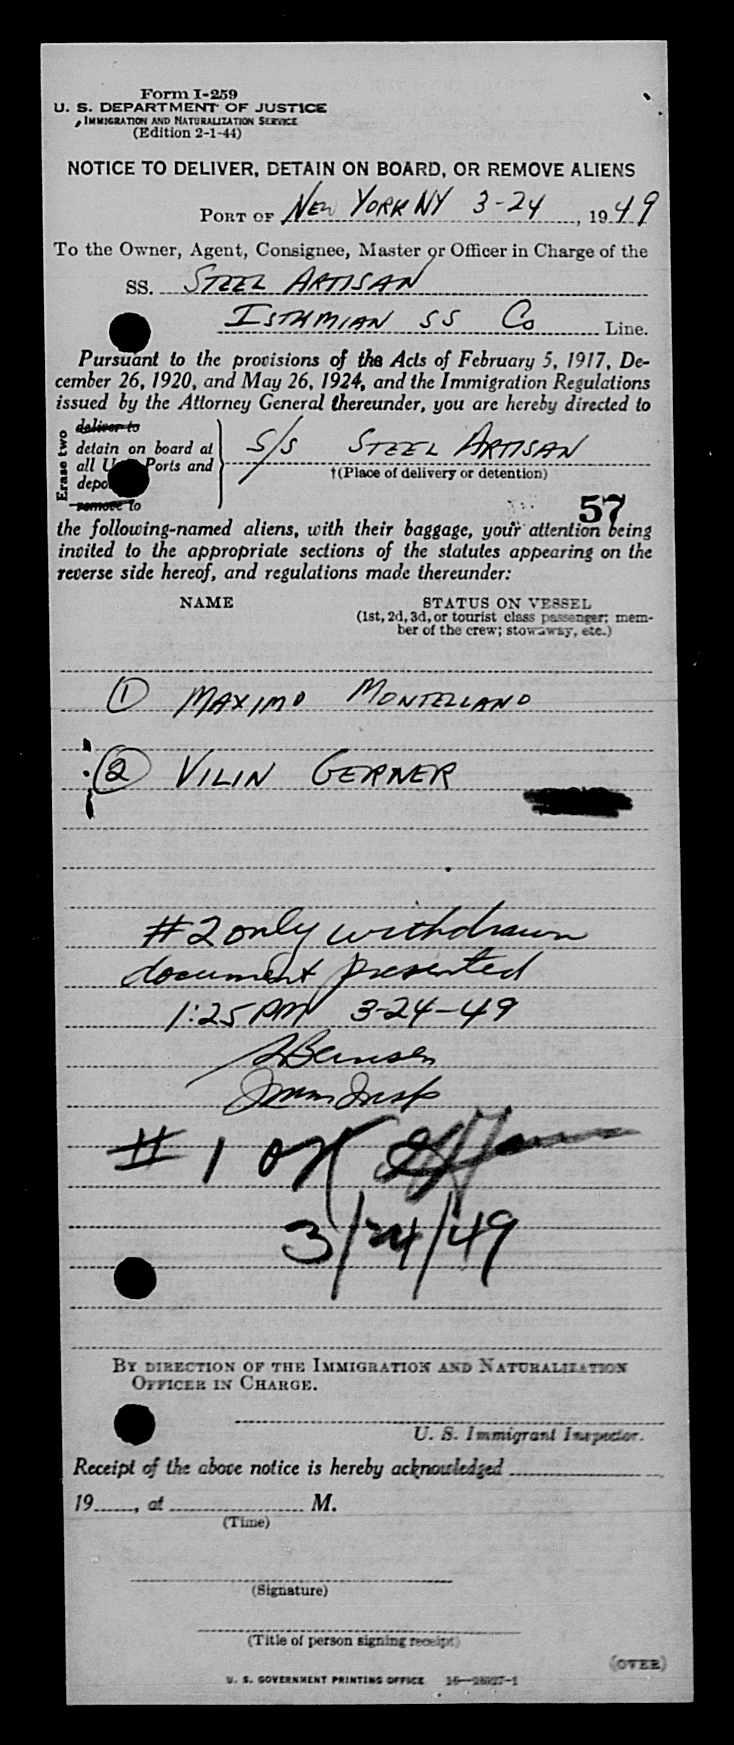 Form I-259
U. S. DEPARTMENT OF JUSTICE
IMMIGRATION AND NATURALIZATION SERVICE
(Edition 2-1-44)
NOTICE TO DELIVER, DETAIN ON BOARD, OR REMOVE ALIENS
PORT OF NEW YORK NY 3-24, 1949
To the Owner, Agent, Consignee, Master or Officer in Charge of the
SS. STEEL ARTISAN
ISTHMIAN SS Co Line.
Pursuant to the provisions of the Acts of February 5, 1917, De-
cember 26, 1920, and May 26, 1924, and the Immigration Regulations
issued by the Attorney General thereunder, you are hereby directed to
Erase two
deliver to
detain on board at
all U Ports and
depo
remove to
S/S STEEL ARTISAN
†(Place of delivery or detention)
57
the following-named aliens, with their baggage, your attention being
invited to the appropriate sections of the statutes appearing on the
reverse side hereof, and regulations made thereunder:
NAME STATUS ON VESSEL
(1st, 2d, 3d, or tourist class passenger; mem-
ber of the crew; stowaway, etc.)
1 MAXIMO MONTELLANO
2 VILIN GERNER
#2 only withdrawn
document presented
1:25 PM 3-24-49
Imm Insp
#1 OK
3/24/49
BY DIRECTION OF THE IMMIGRATION AND NATURALIZATION
OFFICER IN CHARGE.
U. S. Immigrant Inspector.
Receipt of the above notice is hereby acknowledged
19, at M.
(Time)
(Signature)
(Title of person signing receipt)
(OVER)
U. S. GOVERNMENT PRINTING OFFICE